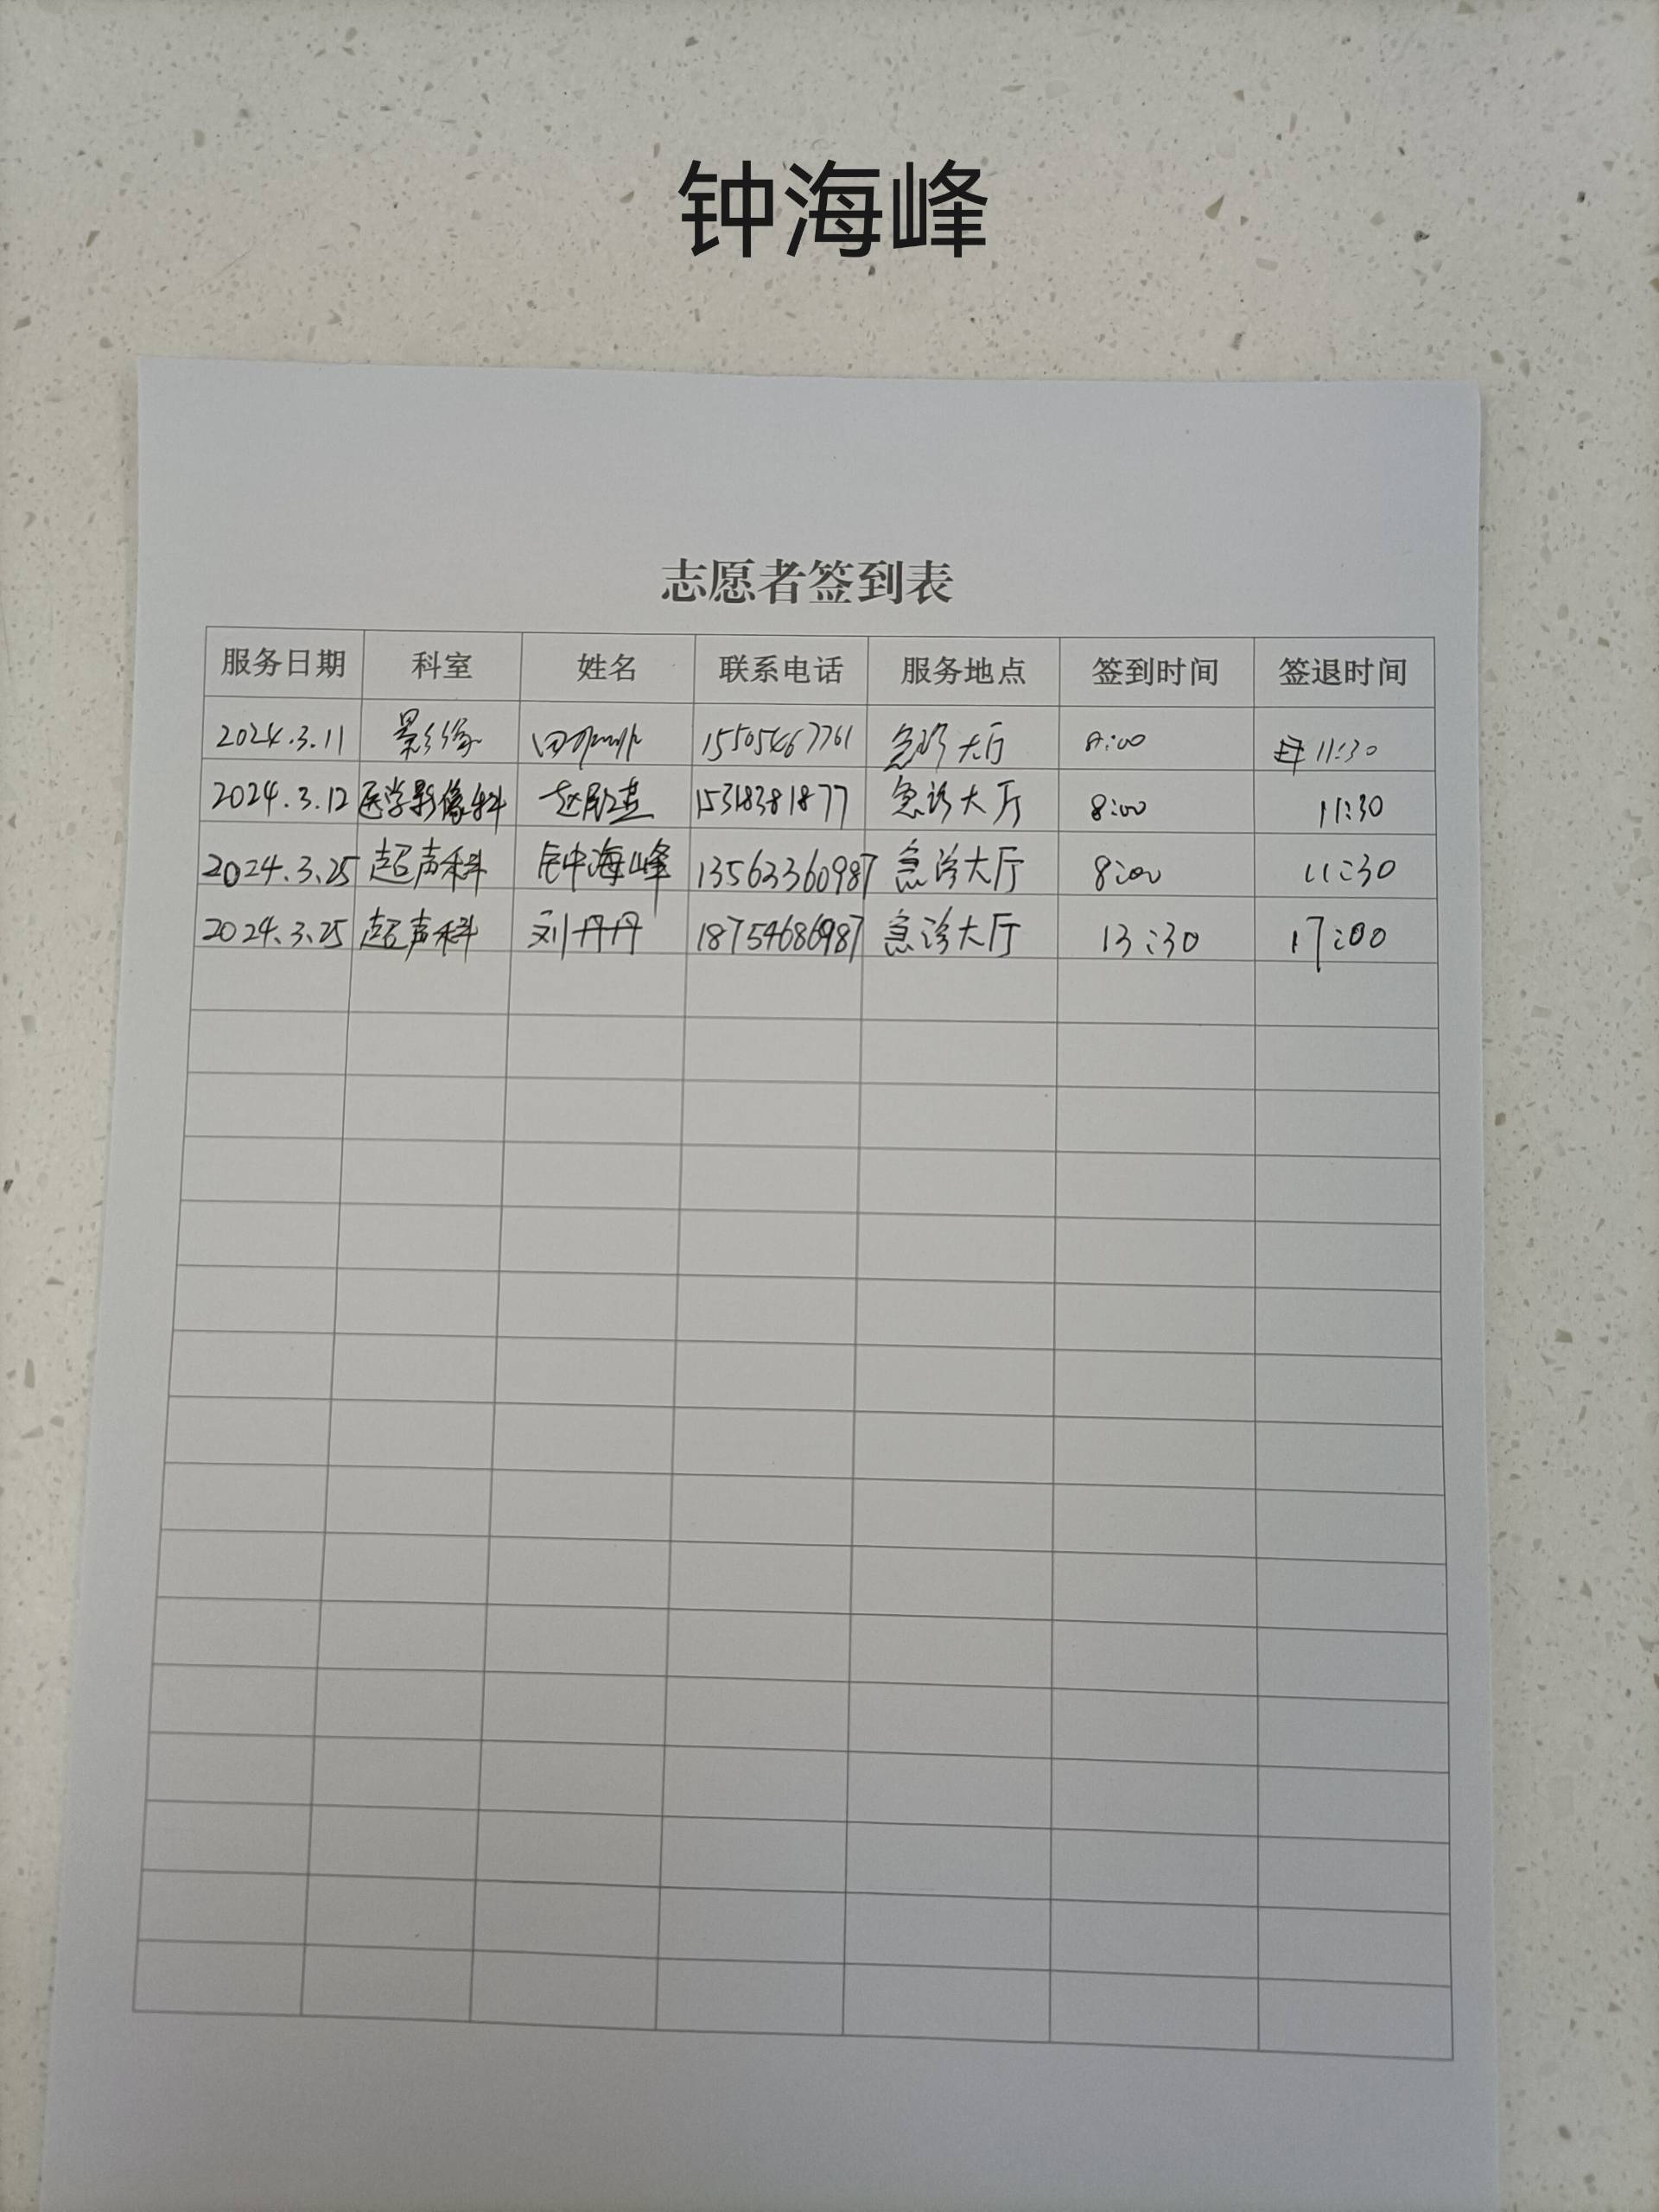 钟海峰
志愿者签到表
服务日期 科室 姓名 联系电话 服务地点 签到时间 签退时间
2024.3.11 影像 15505467761 急诊大厅 8:00 11:30
2024.3.12 医学影像科 15318381877 急诊大厅 8:00 11:30
2024.3.25 超声科 钟海峰 135623360987 急诊大厅 8:00 11:30
2024.3.25 超声科 刘丹丹 18754686987 急诊大厅 13:30 17:00